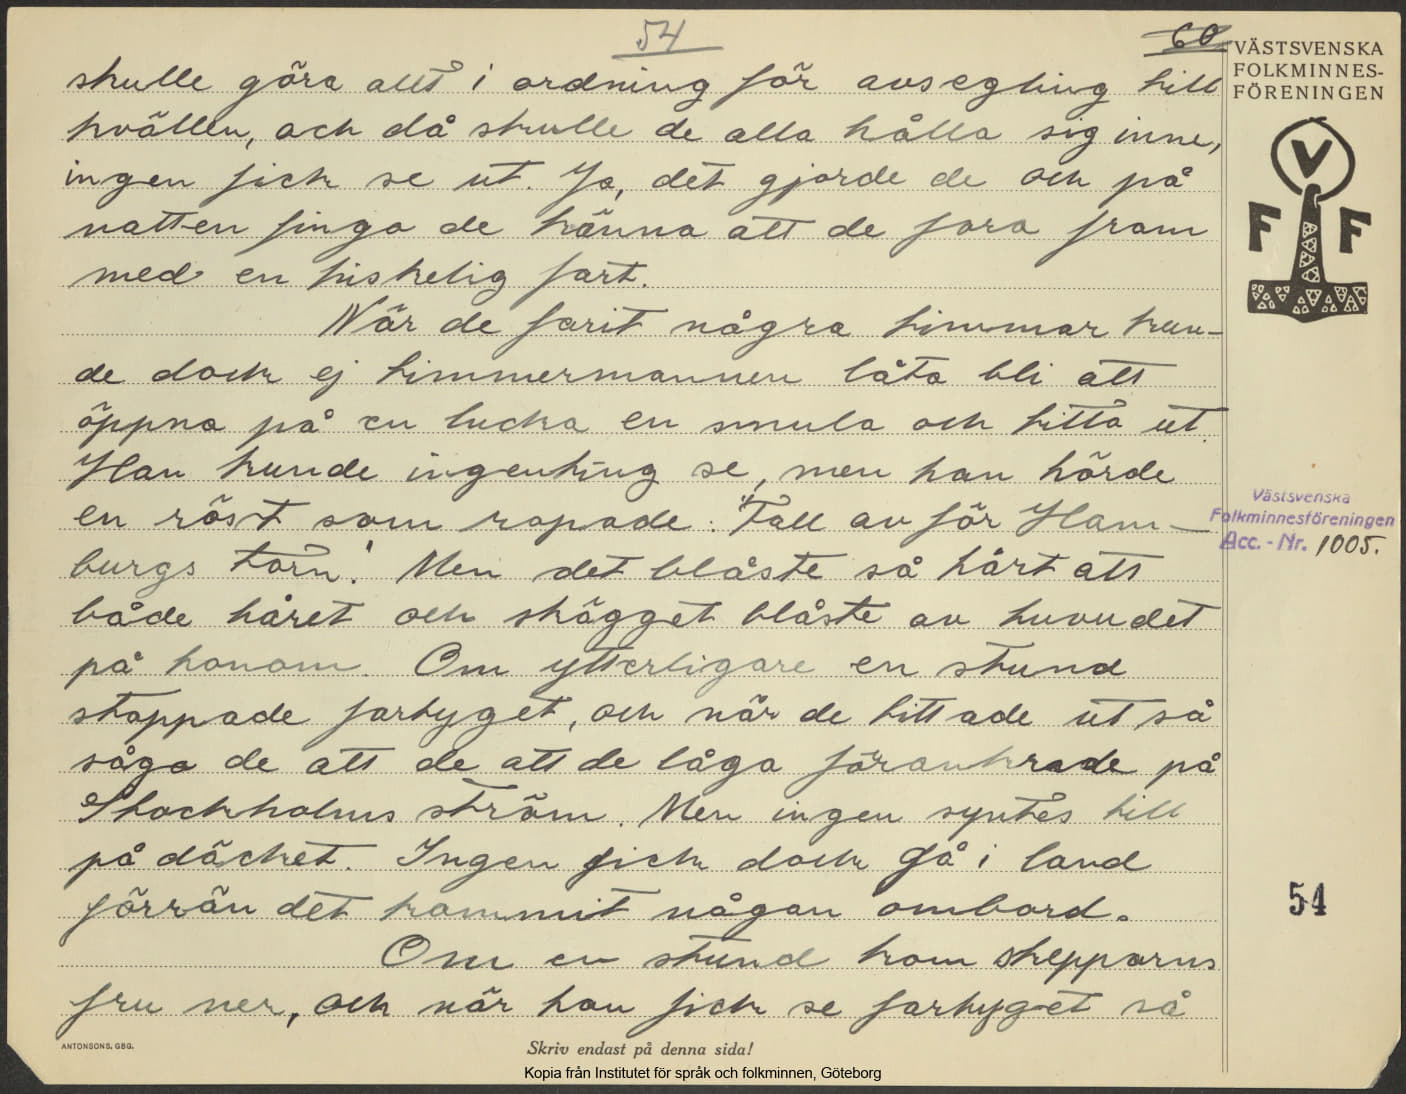 54
60
skulle göra allt i ordning för avsegling till
kvällen, och då skulle de alla hålla sig inne,
ingen fick se ut. Ja, det gjorde de och på
natten fingo de känna att de foro fram
med en hiskelig fart.
När de farit några timmar kun-
de dock ej timmermannen låta bli att
öppna på en lucka en smula och titta ut.
Han kunde ingenting se, men han hörde
en röst som ropade: "Fall av för Ham-
burgs torn!" Men det blåste så hårt att
både håret och skägget blåste av huvudet
på honom. Om ytterligare en stund
stoppade fartyget, och när de tittade ut så
sågo de att de att de lågo förankrade på
Stockholms ström. Men ingen syntes till
på däcket. Ingen fick dock gå i land
förrän det kommit någon ombord.
Om en stund kom skepparns
fru ner, och när hon fick se fartyget så
VÄSTSVENSKA
FOLKMINNES-
FÖRENINGEN
V
F F
Västsvenska
Folkminnesföreningen
Acc. - Nr. 1005.
54
ANTONSONS. GBG.
Skriv endast på denna sida!
Kopia från Institutet för språk och folkminnen, Göteborg